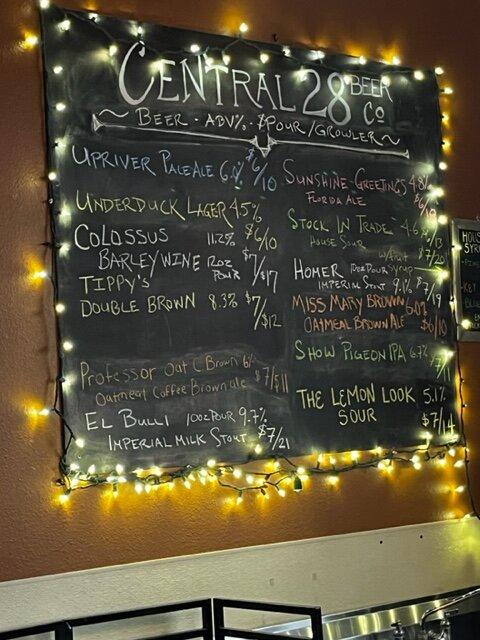 CENTRAL 28 BEER Co
BEER - ABV% - $POUR/GROWLER
UPRIVER PALE ALE 6.0% $6/10
UNDERDUCK LAGER 4.5%
$6/10
COLOSSUS 11.2%
BARLEYWINE 12OZ POUR $7/$17
TIPPY'S
DOUBLE BROWN 8.3% $7/$12
PROFESSOR OAT C. BROWN 6%
Oatmeal Coffee Brown ale $7/$11
EL BULLI 10OZ POUR 9.7%
IMPERIAL MILK STOUT $7/21
SUNSHINE GREETINGS 4.8%
FLORIDA ALE $6/10
STOCK IN TRADE 4.6
HOUSE SOUR
W/ FRUIT $7/20
HOMER 10OZ POUR Syrup
IMPERIAL STOUT 9.1% $7/19
MISS MARY BROWN 6.0%
OATMEAL BROWN ALE $6/10
SHOW PIGEON IPA 6.7%
THE LEMON LOOK 5.1%
SOUR $7/14